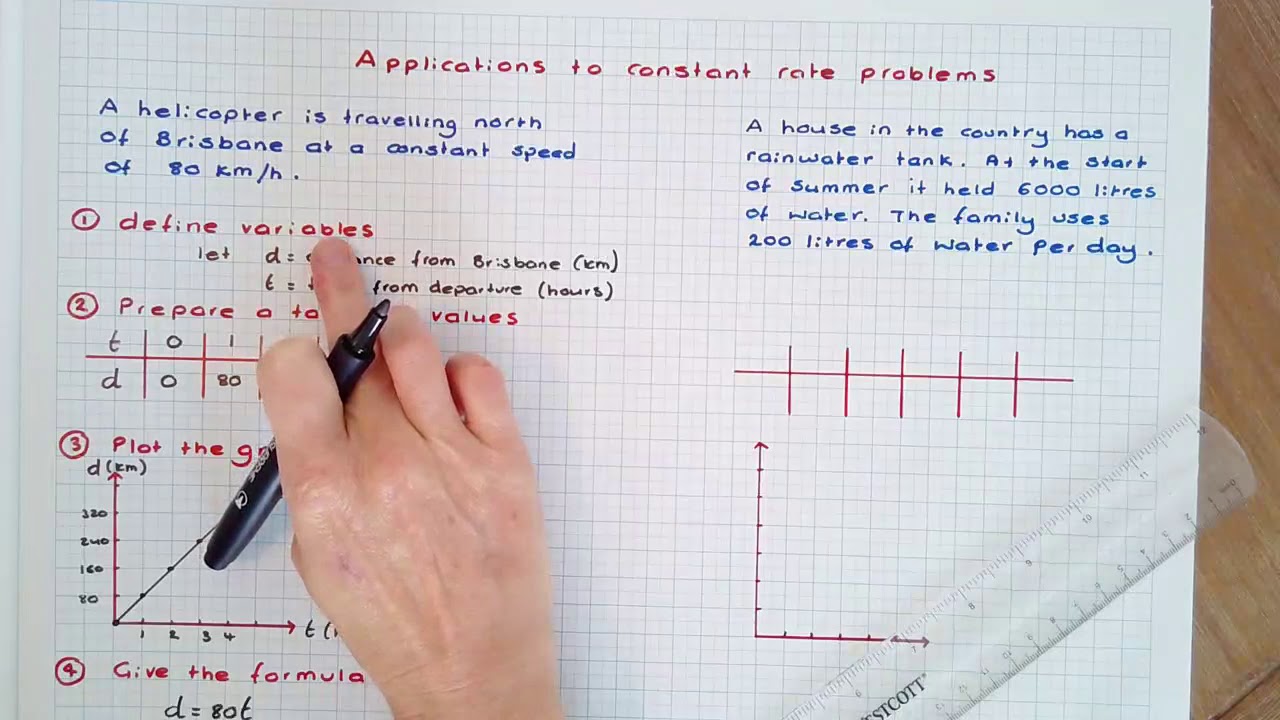 Applications to constant rate problems
A helicopter is travelling north
of Brisbane at a constant speed
of 80 km/h.
① define variables
let d = from Brisbane (km)
t = from departure (hours)
② Prepare a values
t 0 1
d 0 80
③ Plot the
d (km)
320
240
160
80
1 2 3 4 t
④ Give the formula
d = 80t
A house in the country has a
rainwater tank. At the start
of summer it held 6000 litres
of water. The family uses
200 litres of water per day.